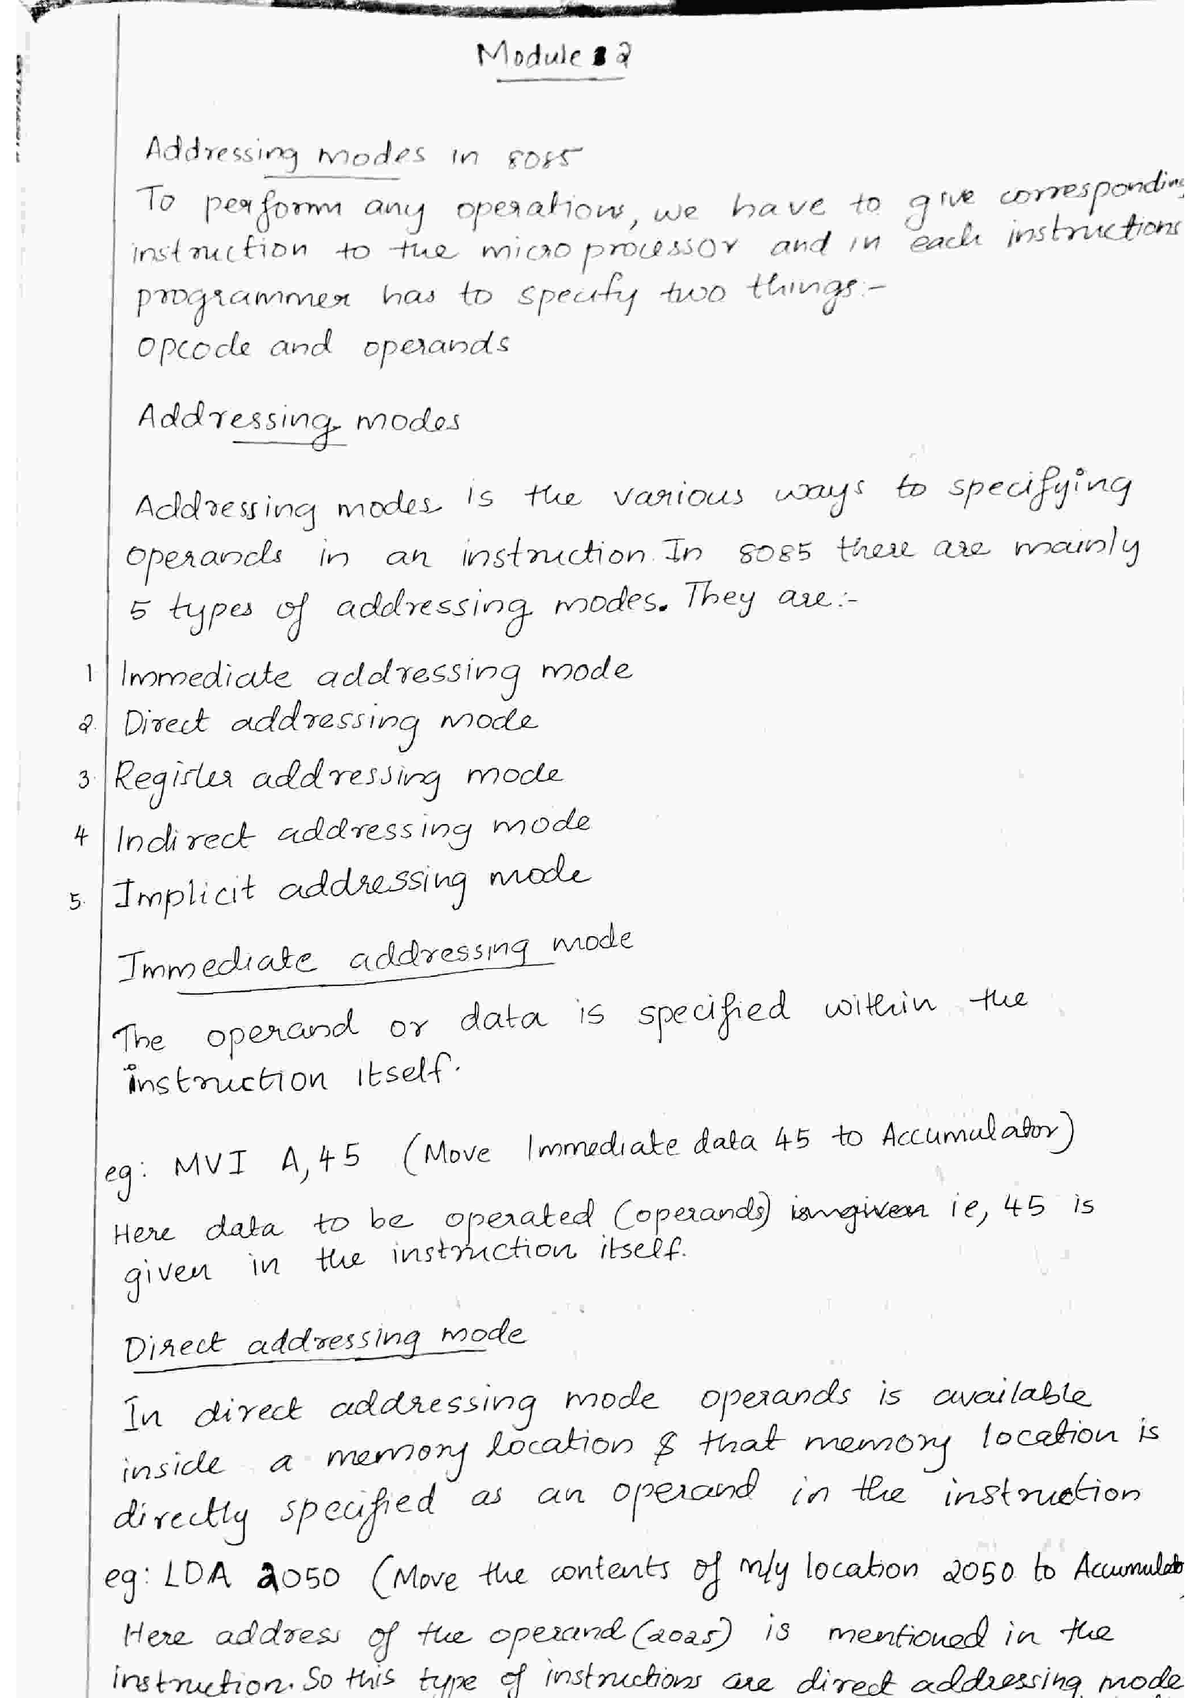 Module 2
Addressing modes in 8085
To perform any operations, we have to give corresponding
instruction to the microprocessor and in each instructions
programmer has to specify two things:-
Opcode and operands
Addressing modes
Addressing modes is the various ways to specifying
operands in an instruction. In 8085 there are mainly
5 types of addressing modes. They are:-
1 Immediate addressing mode
2. Direct addressing mode
3. Register addressing mode
4 Indirect addressing mode
5. Implicit addressing mode
Immediate addressing mode
The operand or data is specified within the
instruction itself.
eg: MVI A, 45 (Move Immediate data 45 to Accumulator)
Here data to be operated (operands) ie, 45 is
given in the instruction itself.
Direct addressing mode
In direct addressing mode operands is available
inside a memory location & that memory location is
directly specified as an operand in the instruction
eg: LDA 2050 (Move the contents of m/y location 2050 to Accumulato
Here address of the operand (2025) is mentioned in the
instruction. So this type of instructions are direct addressing mode